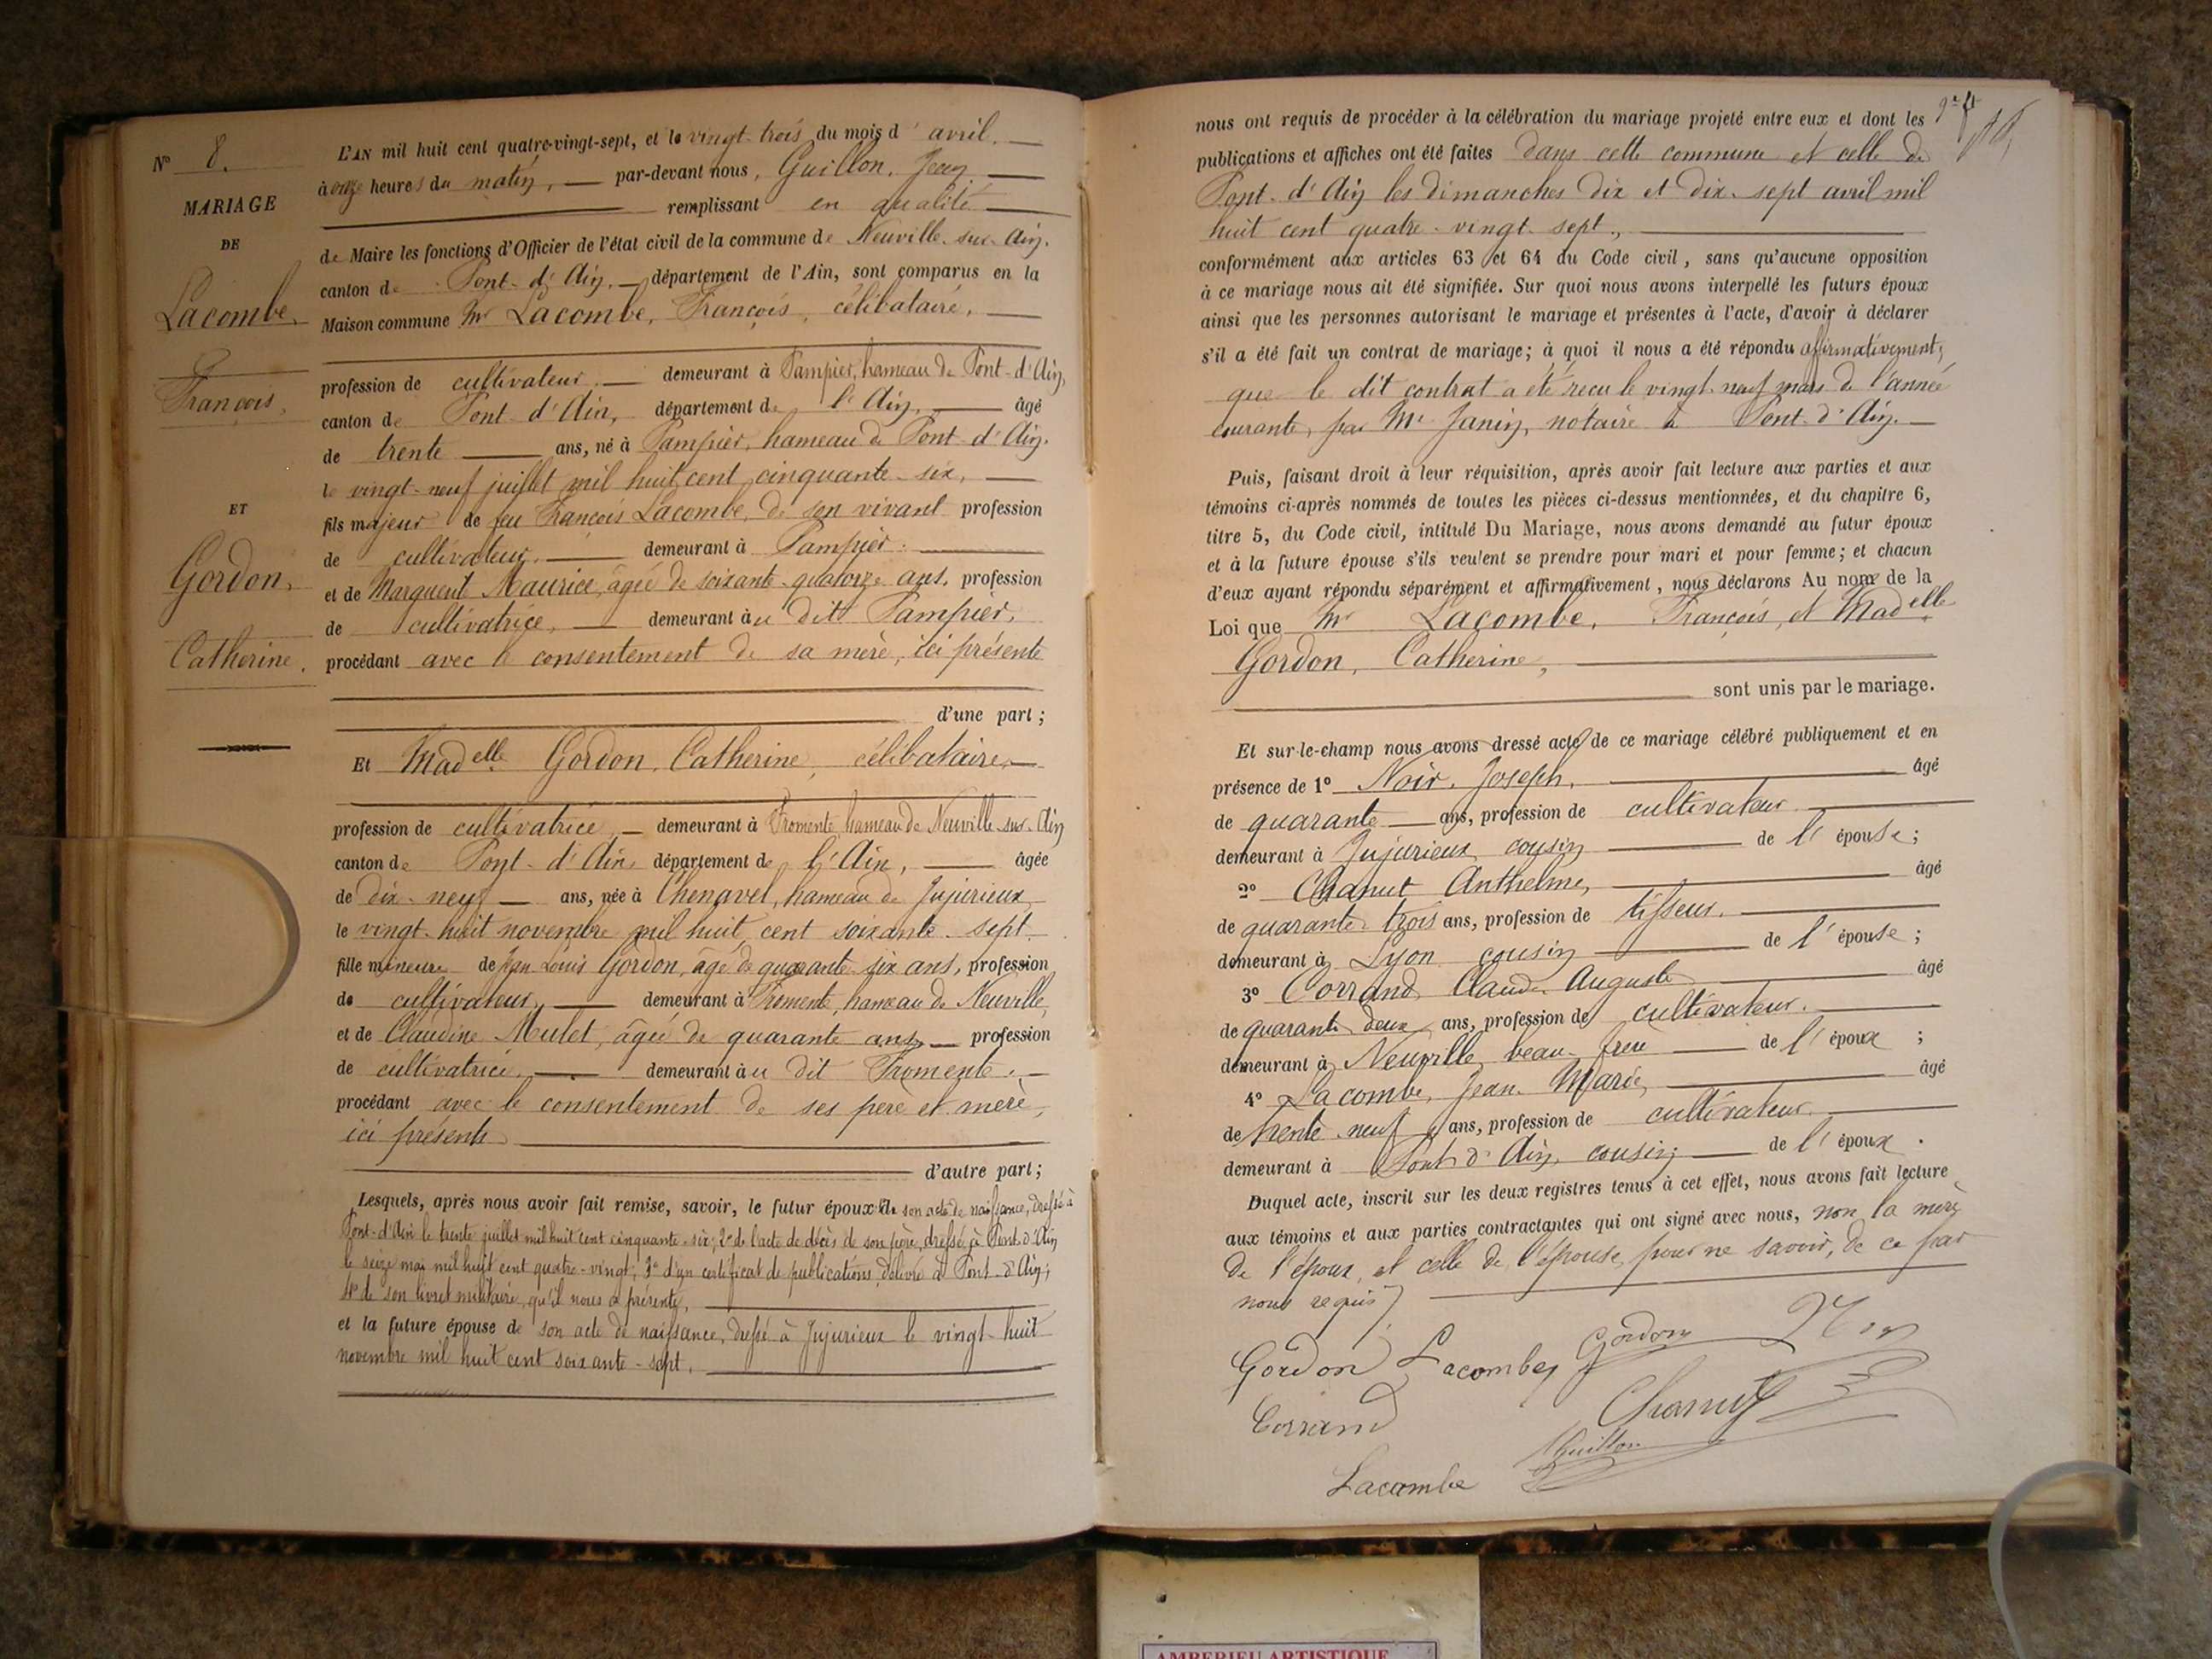 N° 8.
MARIAGE
DE
Lacombe,
François,
ET
Gordon,
Catherine.
L'AN mil huit cent quatre-vingt-sept, et le vingt-trois du mois d'avril.
à onze heures du matin, par-devant nous, Guillon, Jean
remplissant en qualité
de Maire les fonctions d'Officier de l'état civil de la commune de Neuville-sur-Ain,
canton de Pont-d'Ain, département de l'Ain, sont comparus en la
Maison commune Mr Lacombe, François, célibataire,
profession de cultivateur, demeurant à Pampier, hameau de Pont-d'Ain,
canton de Pont d'Ain, département de l'Ain, âgé
de trente ans, né à Pampier, hameau de Pont-d'Ain.
le vingt-neuf juillet mil huit cent cinquante-six,
fils majeur de feu François Lacombe, de son vivant profession
de cultivateur, demeurant à Pampier.
et de Marguerit Maurice, âgée de soixante-quatorze ans, profession
de cultivatrice, demeurant au dit Pampier,
procédant avec le consentement de sa mère, ici présente
d'une part ;
Et Madelle Gordon, Catherine, célibataire,
profession de cultivatrice, demeurant à Fromente, hameau de Neuville-sur-Ain
canton de Pont-d'Ain, département de l'Ain, âgée
de dix-neuf ans, née à Chenavel, hameau de Jujurieux
le vingt-huit novembre mil huit cent soixante-sept.
fille mineure de Jean Louis Gordon, âgé de quarante six ans, profession
de cultivateur, demeurant à Fromente, hameau de Neuville,
et de Claudine Mulet, âgée de quarante ans, profession
de cultivatrice, demeurant au dit Fromente.
procédant avec le consentement de ses père et mère,
ici présents
d'autre part ;
Lesquels, après nous avoir fait remise, savoir, le futur époux de son acte de naissance, dressé à
Pont-d'Ain le trente juillet mil huit cent cinquante-six; 2° de l'acte de décès de son père, dressé à Pont-d'Ain
le seize mai mil huit cent quatre-vingt; 3° d'un certificat de publications délivré à Pont-d'Ain;
4° de son livret militaire, qu'il nous a présenté,
et la future épouse de son acte de naissance, dressé à Jujurieux le vingt-huit
novembre mil huit cent soixante-sept.
nous ont requis de procéder à la célébration du mariage projeté entre eux et dont les
publications et affiches ont été faites dans cette commune et celle de
Pont-d'Ain les dimanches dix et dix-sept avril mil
huit cent quatre-vingt-sept,
conformément aux articles 63 et 64 du Code civil, sans qu'aucune opposition
à ce mariage nous ait été signifiée. Sur quoi nous avons interpellé les futurs époux
ainsi que les personnes autorisant le mariage et présentes à l'acte, d'avoir à déclarer
s'il a été fait un contrat de mariage; à quoi il nous a été répondu affirmativement,
que le dit contrat a été reçu le vingt-neuf mars de l'année
courante, par Me Janin, notaire à Pont-d'Ain.
Puis, faisant droit à leur réquisition, après avoir fait lecture aux parties et aux
témoins ci-après nommés de toutes les pièces ci-dessus mentionnées, et du chapitre 6,
titre 5, du Code civil, intitulé Du Mariage, nous avons demandé au futur époux
et à la future épouse s'ils veulent se prendre pour mari et pour femme; et chacun
d'eux ayant répondu séparément et affirmativement, nous déclarons Au nom de la
Loi que Mr Lacombe, François, et Madelle
Gordon, Catherine,
sont unis par le mariage.
Et sur-le-champ nous avons dressé acte de ce mariage célébré publiquement et en
présence de 1° Noir, Joseph, âgé
de quarante ans, profession de cultivateur
demeurant à Jujurieux, cousin de l'épouse ;
2° Chanut Anthelme, âgé
de quarante-trois ans, profession de tisseur.
demeurant à Lyon cousin de l'épouse ;
3° Corrand Claude Auguste âgé
de quarante deux ans, profession de cultivateur.
demeurant à Neuville, beau-frère de l'époux ;
4° Lacombe, Jean-Marie, âgé
de trente-neuf ans, profession de cultivateur
demeurant à Pont d'Ain, cousin de l'époux.
Duquel acte, inscrit sur les deux registres tenus à cet effet, nous avons fait lecture
aux témoins et aux parties contractantes qui ont signé avec nous, non la mère
de l'époux, et celle de l'épouse, pour ne savoir, de ce par
nous requis
Gordon Lacombe Gordon Noir
Corrand Chanut
Guillon
Lacombe
AMBERIEU ARTISTIQUE